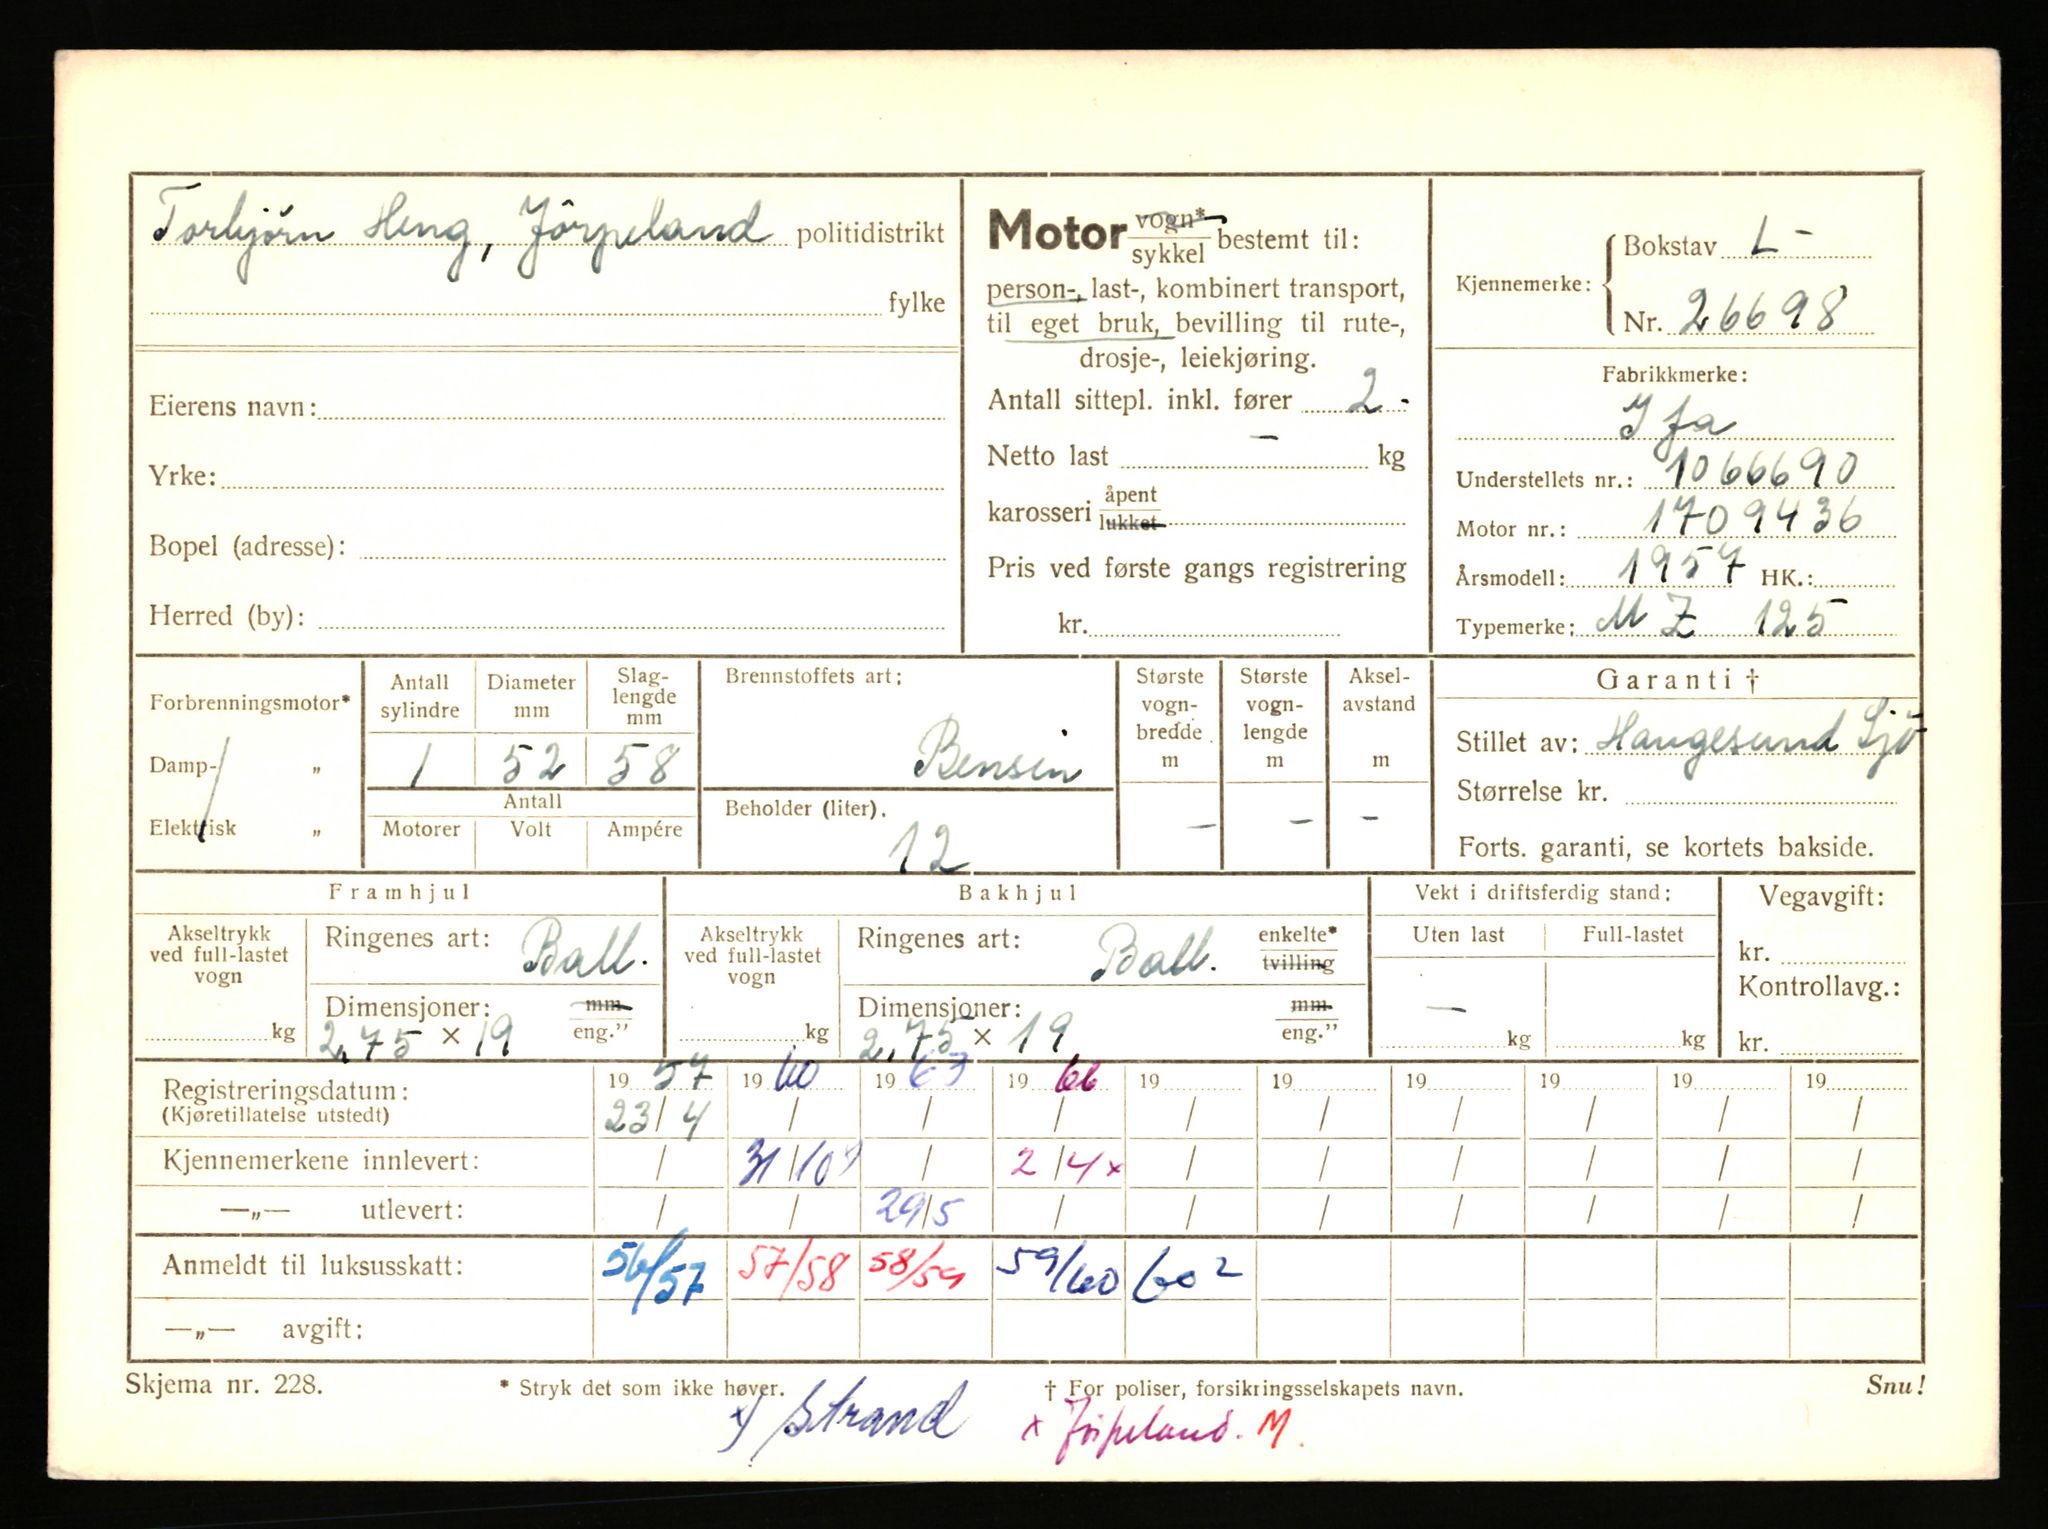 Torbjørn Heng, Jörpeland politidistrikt
fylke
Eierens navn:
Yrke:
Bopel (adresse):
Herred (by):
Motor vogn* sykkel bestemt til:
person-, last-, kombinert transport,
til eget bruk, bevilling til rute-,
drosje-, leiekjøring.
Antall sittepl. inkl. fører 2.
Netto last — kg
karosseri åpent lukket
Pris ved første gangs registrering
kr.
Kjennemerke: Bokstav L-
Nr. 26698
Fabrikkmerke:
Ifa
Understellets nr.: 1066690
Motor nr.: 1709436
Årsmodell: 1957 HK.:
Typemerke: MZ 125
Forbrenningsmotor*
Damp- „
Elektrisk „
Antall sylindre
Diameter mm
Slag-lengde mm
1 52 58
Antall
Motorer Volt Ampére
Brennstoffets art:
Bensin
Beholder (liter).
12
Største vogn-bredde m
—
Største vogn-lengde m
—
Aksel-avstand m
—
Garanti †
Stillet av: Haugesund Sjö
Størrelse kr.
Forts. garanti, se kortets bakside.
Framhjul
Akseltrykk ved full-lastet vogn
kg
Ringenes art: Ball.
Dimensjoner: mm
2,75 × 19 eng.”
Bakhjul
Akseltrykk ved full-lastet vogn
kg
Ringenes art: Ball. enkelte* tvilling
Dimensjoner: mm
2,75 × 19 eng.”
Vekt i driftsferdig stand:
Uten last Full-lastet
—
kg kg
Vegavgift:
kr.
Kontrollavg.:
kr.
Registreringsdatum: 19 57 19 60 19 63 19 66 19 19 19 19 19 19
(Kjøretillatelse utstedt) 23/4 / / / / / / / / /
Kjennemerkene innlevert: / 31/10 / 2/4x / / / / / /
—„— utlevert: / / 29/5 / / / / / / /
Anmeldt til luksusskatt: 56/57 57/58 58/59 59/60 60 2
—„— avgift:
Skjema nr. 228. * Stryk det som ikke høver. † For poliser, forsikringsselskapets navn. Snu!
x) Strand x Jörpeland. M.